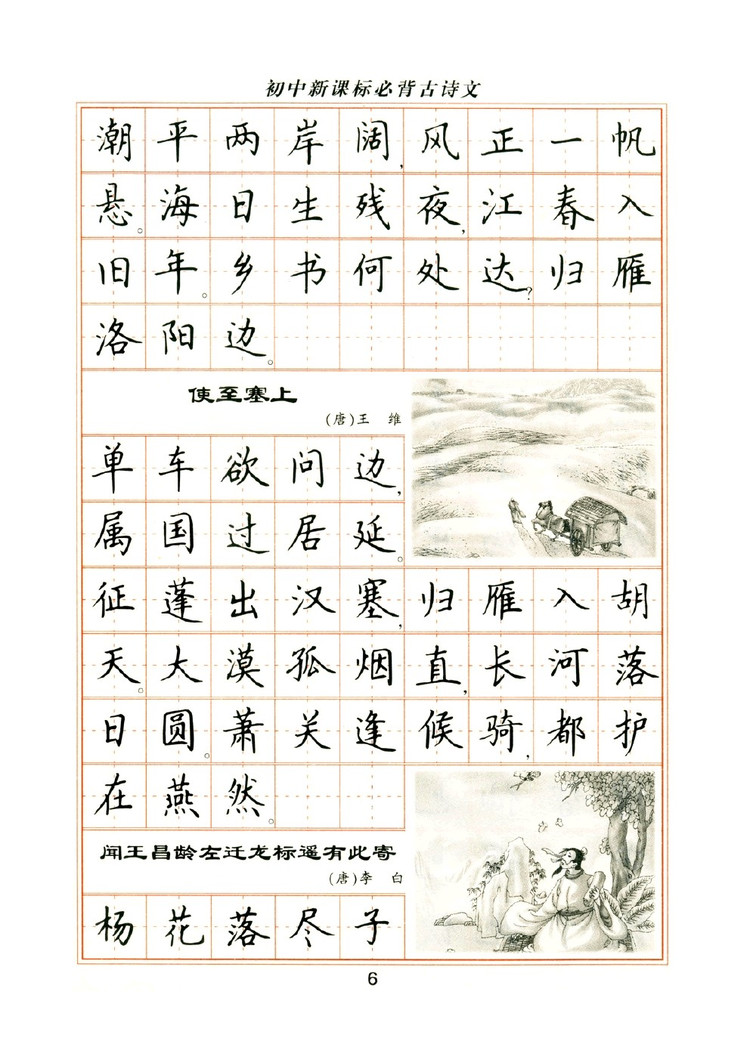 初中新课标必背古诗文
潮平两岸阔,风正一帆
悬。海日生残夜,江春入
旧年。乡书何处达?归雁
洛阳边。
使至塞上
(唐)王 维
单车欲问边,
属国过居延。
征蓬出汉塞,归雁入胡
天。大漠孤烟直,长河落
日圆。萧关逢候骑,都护
在燕然。
闻王昌龄左迁龙标遥有此寄
(唐)李 白
杨花落尽子
6